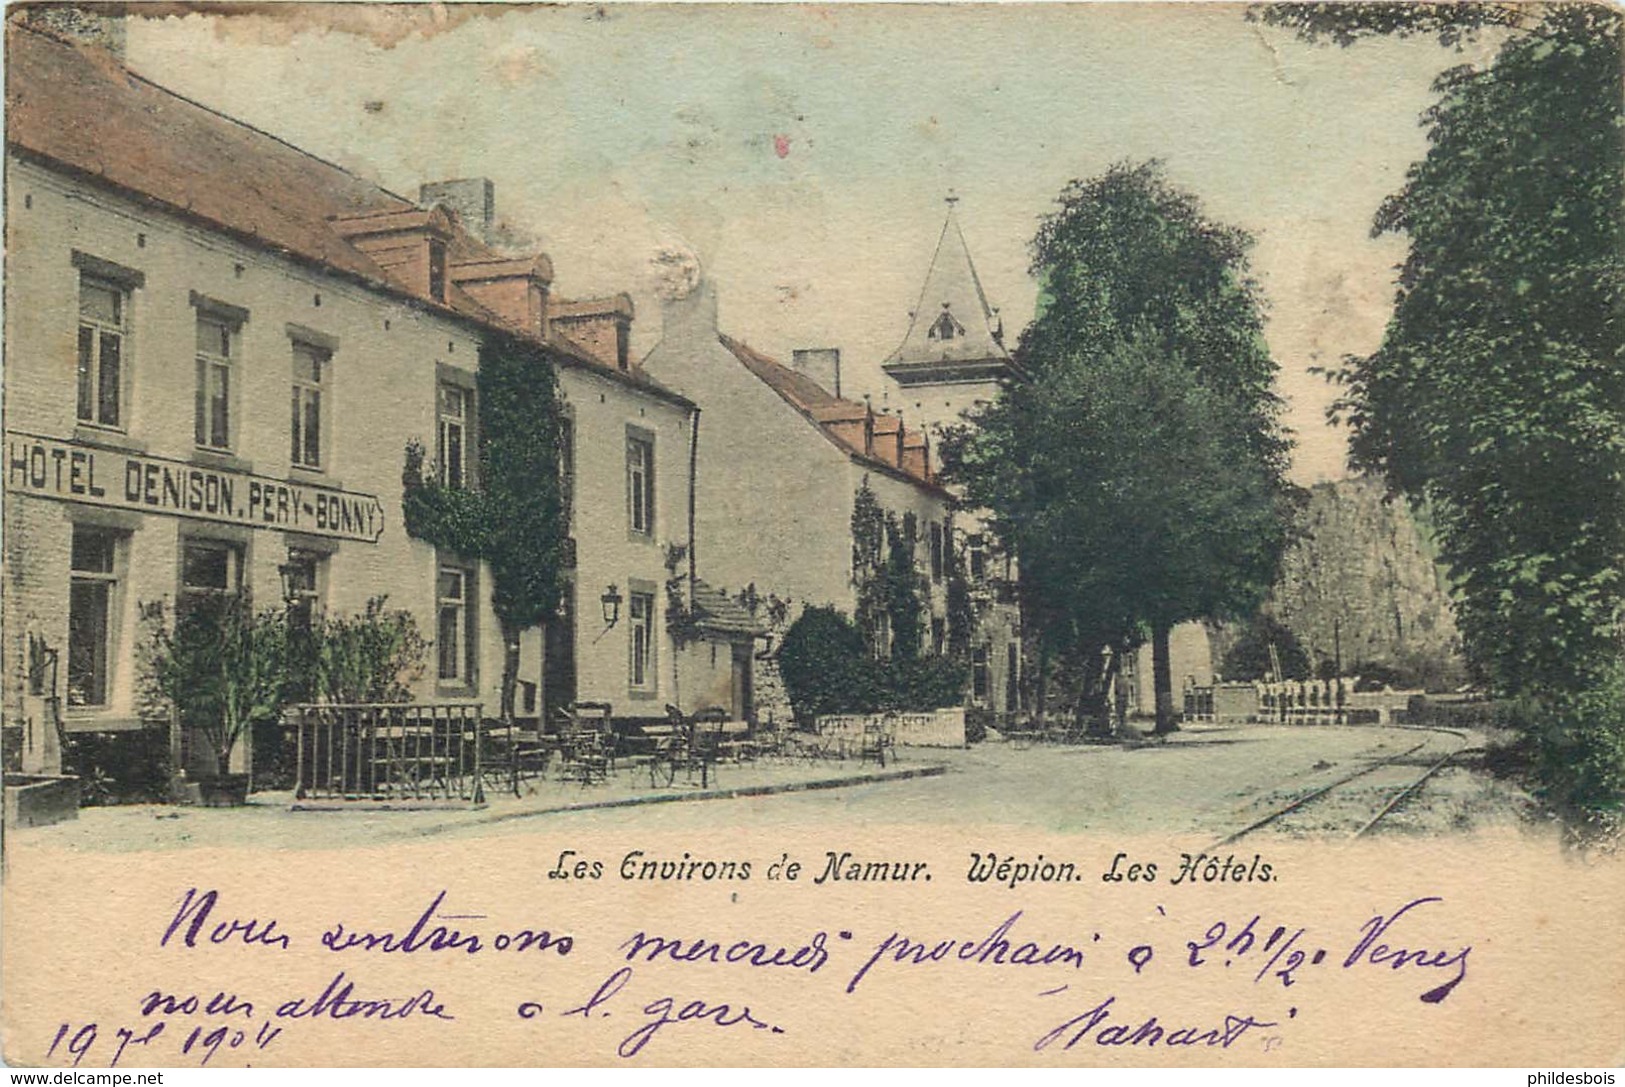 HÔTEL DENISON. PERY-BONNY
HÔTEL
Les Environs de Namur. Wépion. Les Hôtels.
Nous rentrerons mercredi prochain à 2h 1/2. Venez
nous attendre à l. gare.
19 7e 1904
delcampe.net
phildesbois